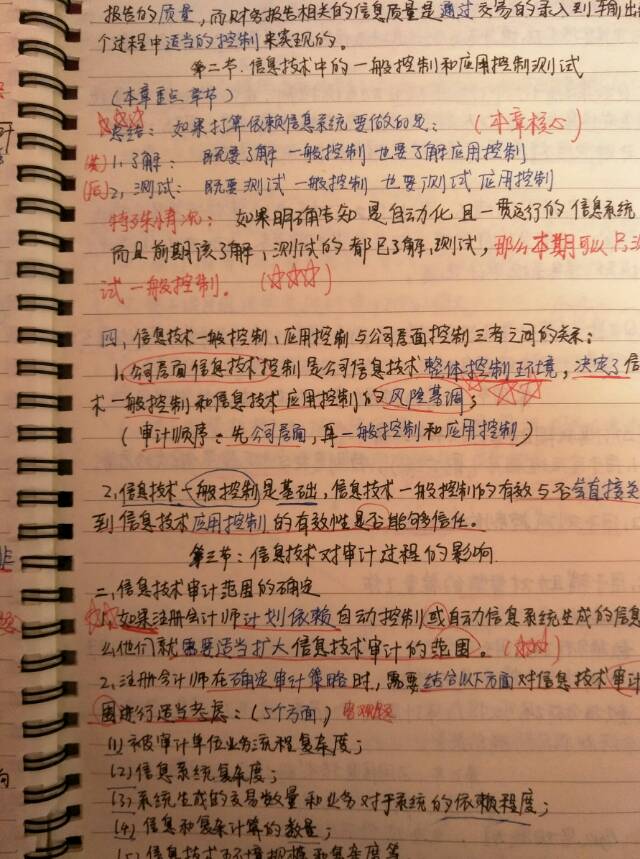 报告的质量，而财务报告相关的信息质量是通过交易的录入到输出
个过程中适当的控制来实现的。
第二节.信息技术中的一般控制和应用控制测试
(本章重点章节)
总结：如果打算依赖信息系统要做的是：(本章核心)
1.了解：既要了解一般控制也要了解应用控制
(后)2,测试：既要测试一般控制也要测试应用控制
特殊情况：如果明确告知是自动化且一贯运行的信息系统
而且前期该了解、测试的都已了解、测试，那么本期可以只测
试一般控制。(☆☆☆)
四，信息技术一般控制、应用控制与公司层面控制三者之间的关系：
1.公司层面信息技术控制是公司信息技术整体控制环境，决定了信
术一般控制和信息技术应用控制的风险基调；
(审计顺序：先公司层面，再一般控制和应用控制)
2.信息技术一般控制是基础，信息技术一般控制的有效与否会直接关
到信息技术应用控制的有效性是否能够信任。
第三节：信息技术对审计过程的影响
二、信息技术审计范围的确定
1.如果注册会计师计划依赖自动控制或自动信息系统生成的信息
么他们就需要适当扩大信息技术审计的范围。(☆☆☆)
2.注册会计师在确定审计策略时，需要结合以下方面对信息技术审计
围进行适当考虑：(5个方面)客观题
(1)被审计单位业务流程复杂度；
(2)信息系统复杂度；
(3)系统生成的交易数量和业务对于系统的依赖程度；
(4)信息和复杂计算的数量；
(5)信息技术环境规模和复杂度等